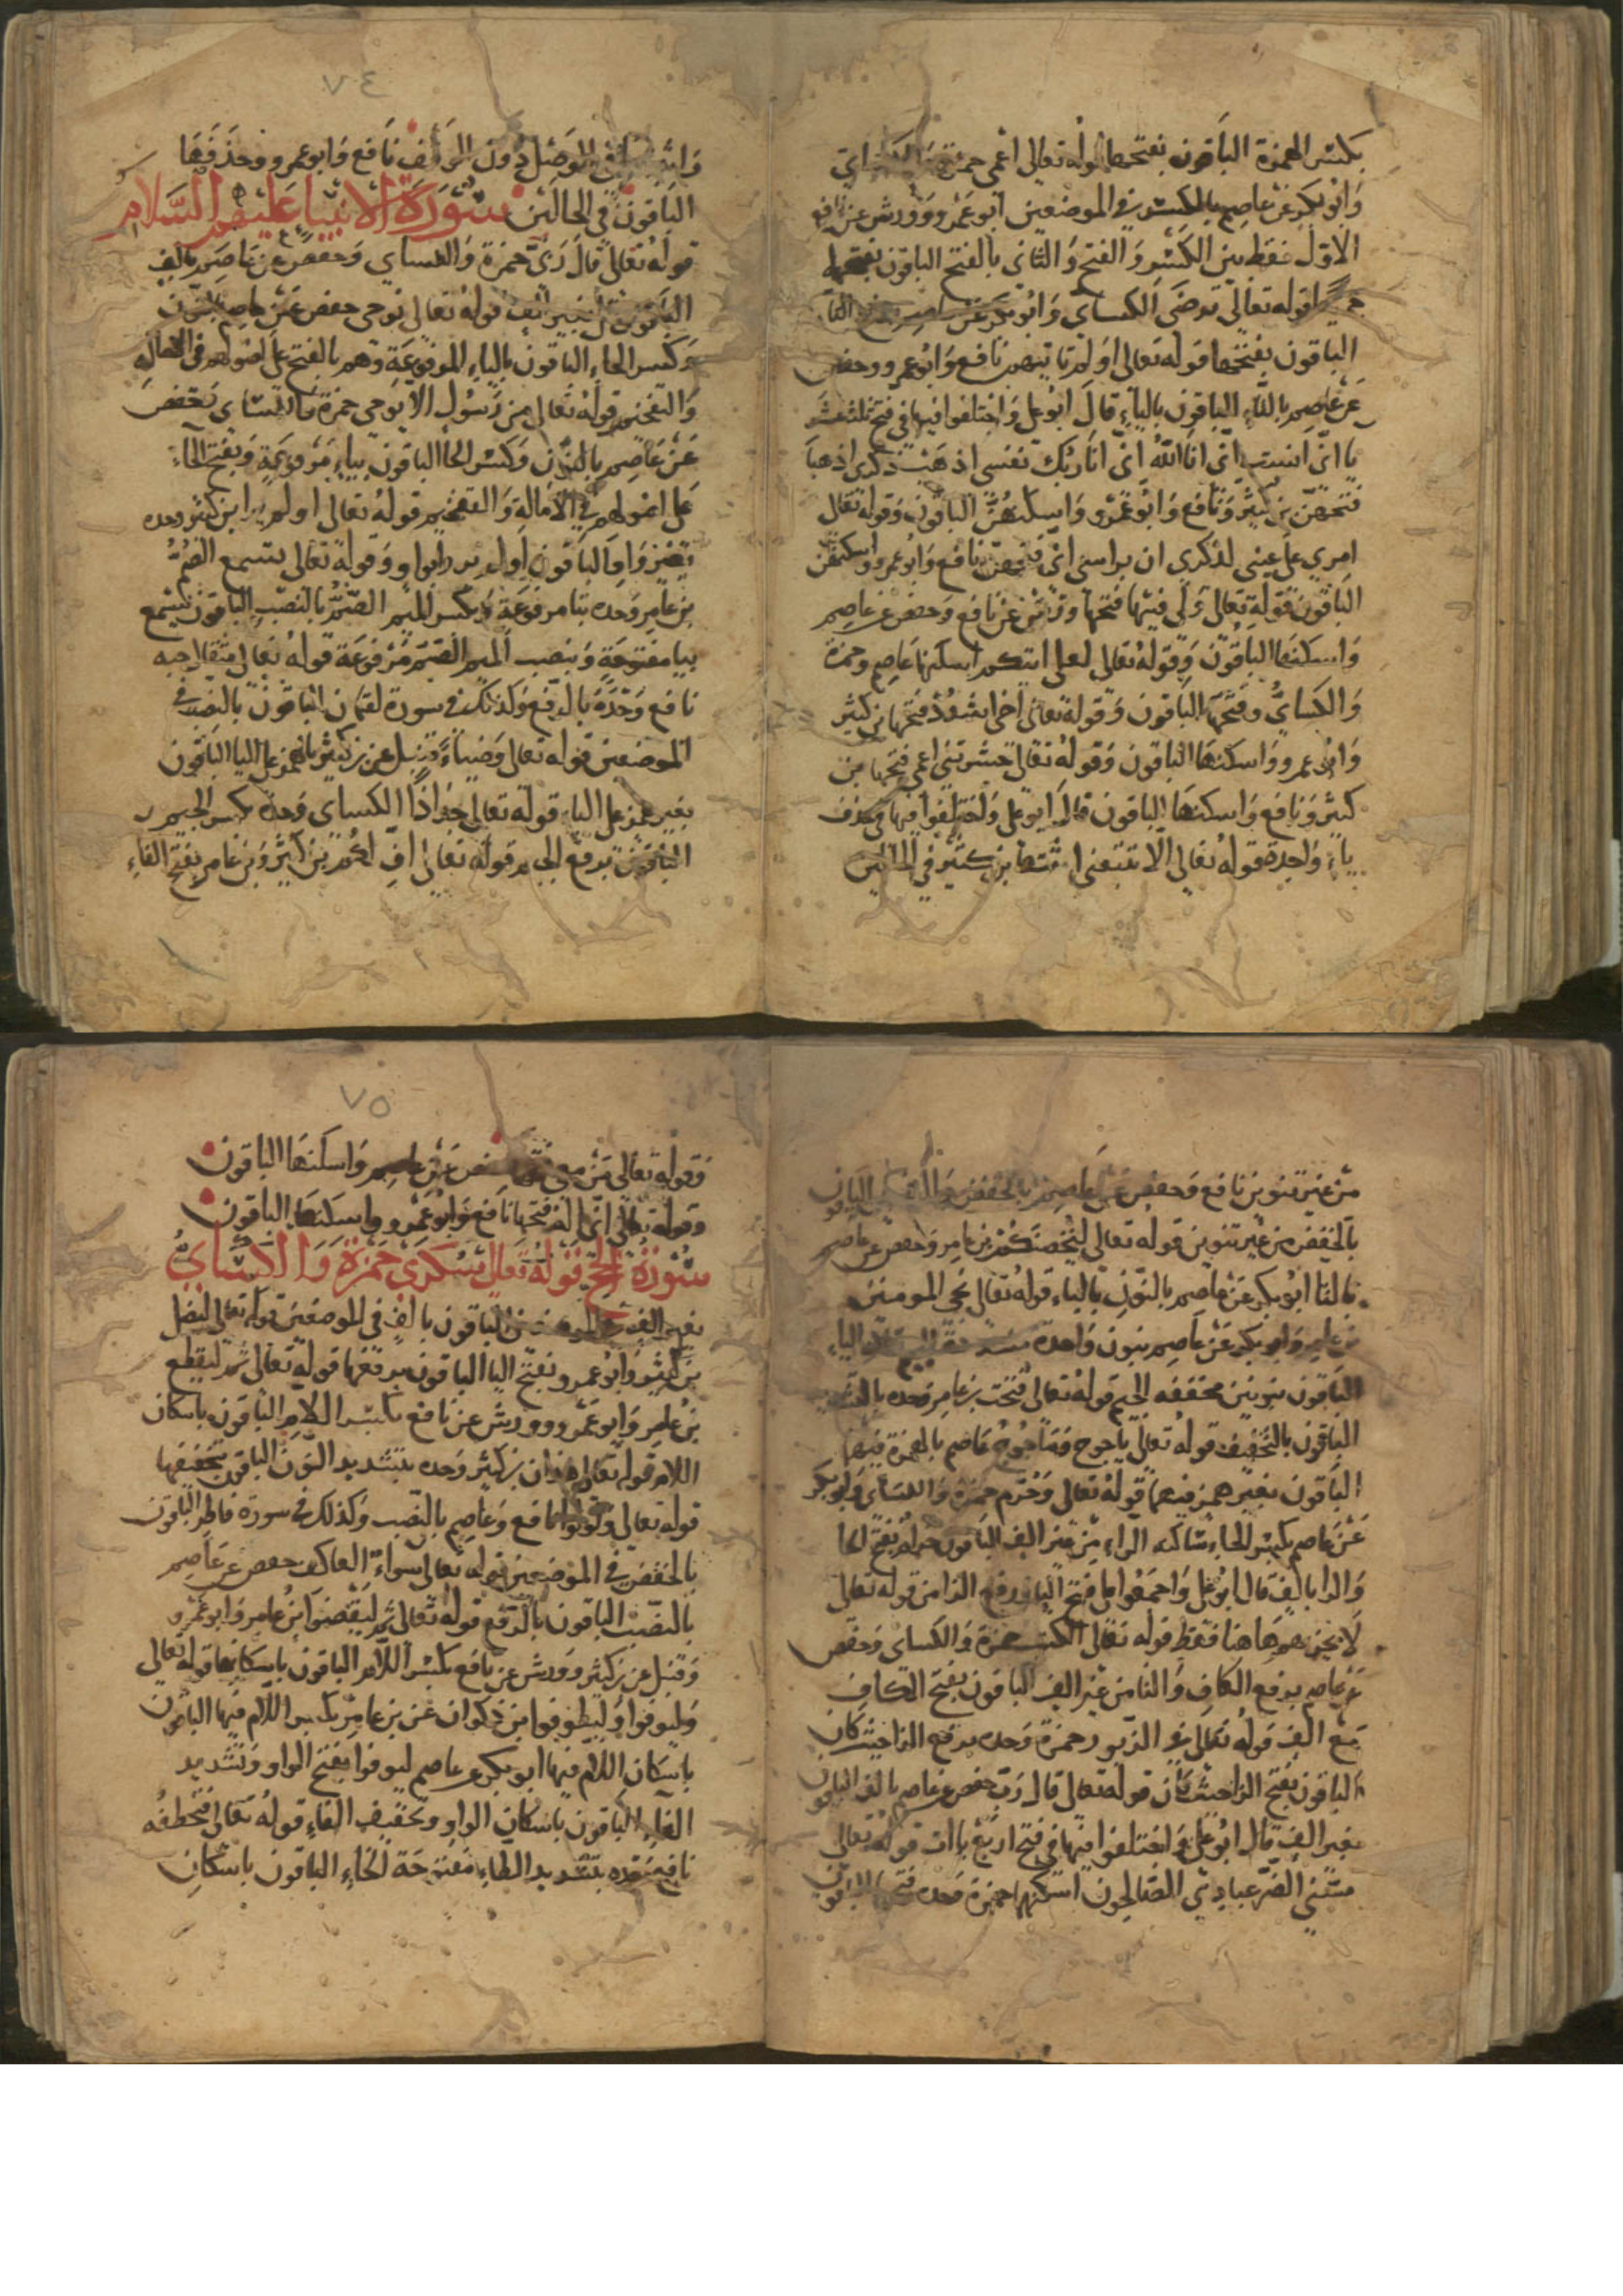 بكسر الهمزة الباقون بفتحها قوله تعالى اعمى حمزة والكساى
وَابُو بكر عن عاصم بالكسر في الموضعين ابو عمرو وورش عن نافع
الاوّل فقط بين الكسر وَالفتح وَالثانى بالفتح الباقون بفتحها
جميعا قوله تعالى ترضى الكساى وَابُو بكر عن عاصم بضم التا
الباقون بفتحها قوله تعالى اوَلم تاتيهم نافع وَابُو عمرو وحفص
عن عاصم بالتاء الباقون بالياء قال ابو على وَاختلفوا فيها في فتح ثلث عشر
يا انى انست انى انا الله انى انا ربك نفسى اذهب ذكرى اذهبا
فتحهن بن كثير وَنافع وَابُو عمرو وَاسكنهُنّ الباقون وَقوله تعالى
امرى على عينى لذكرى ان براسى انى فتحهنّ نافع وَابُو عمرو وَاسكنهن
الباقون قوله تعالى وَلى فيها فتحها ورش عن نافع وَحفص عن عاصم
وَاسكنها الباقون وَقوله تعالى لعلى اتيكم اسكنها عاصم وحمزة
وَالكساىُّ وفتحها الباقون وَقوله تعالى اخى اشدُدْ فتحها بن كثير
وَابُو عمرو وَاسكنها الباقون وَقوله تعالى حشرتنى اعمى فتحها بن
كثير وَنافع وَاسكنها الباقون قال ابو على وَاختلفوا فيها في حذف
ياء وَاحدة قوله تعالى الّا تتبعنى اثبتها بن كثير في الحالين
٧٤
وَاثبتها في الوصل دون الوقف نافع وَابو عمرو وحذفها
الباقون في الحالين سُورَة الانبيا عليهم السّلام
قوله تعالى قال رَبّى حمزة وَالكساى وَحفص عن عاصم بالف
الباقون قل بغير الف قوله تعالى نوحى حفص عن عاصم بالنون
وَكسر الحاء الباقون بالياء المرفوعَة وَهم بالفتح على اصولهم فى الامالة
وَالتفخيم قوله تعالى من رَسُول الا يوحى حمزة وَالكساى وَحفص
عَن عَاصم بالنون وَكسر الحا الباقون بياءٍ مَرفوعَةٍ وَبفتح الحاءِ
على اصُولهم في الامالة وَالتفخيم قوله تعالى اولم ير ابن كثير وحده
بغير وَاو الباقون اولم ير بواو وَقوله تعالى يسمع الصُّمُّ
بن عامر وَحده بتا مرفوعَة وَبكسر الميم الصّمّ بالنصب الباقون يسمع
بيا مفتوحة وَبنصب الميم الصمّ مرفوعَة قوله تعالى مثقال حبه
نافع وَحدَهُ بالرفع وَكذلك في سورة لقمان الباقون بالنصب في
الموضعين قوله تعالى وَضياءً قنبل عن بن كثير بالهمز على اليا الباقون
بغير همز على الياء قوله تعالى جذاذًا الكساى وَحده بكسر الجيم
الباقون برفع الجيم قوله تعالى افّ لكم بن كثير وَبن عامر بفتح الفاءِ
من غير تنوين نافع وَحفص عن عاصم بالخفض وَالتنوين الباقون
بالخفض من غير تنوين قوله تعالى لتُحصنكم بن عامر وَحفص عن عاصم
بالتا ابُو بكر عن عاصم بالنون بالياءِ قوله تعالى نجى المومنين
بن عامر وَابو بكر عن عاصم بنون وَاحدة
الباقون بنونين مخففه الجيم قوله تعالى فتحت بن عامر وَحده بالتشديد
الباقون بالتخفيف قوله تعالى يأجوج وَمَأجوج عاصم بالهمزة فيهما
الباقون بغير همز فيهما قوله تعالى وَحرم حمزة وَالكساى وَابو بكر
عَن عاصم بكسر الحاء ساكنه الراء من غير الف الباقون حرام بفتح الحا
وَالرا بالف قال ابُو على وَاجمعوا على فتح الياء ورفع الزا من قوله تعالى
لَا يحزنهم هَاهنا فقط قوله تعالى للكتب حمزة وَالكساى وَحفص
عن عاصم برفع الكاف وَالتا من غير الف الباقون بفتح الكاف
مع الف قوله تعالى في الزّبور حمزة وَحده برفع الزا حيث كان
الباقون بفتح الزا حيث كان قوله تعالى قال رَبّ حفص عن عاصم بالف الباقون
بغير الف قال ابُو على وَاختلفوا فيها في فتح اربَع ياآت قوله تعالى
مسّنى الضّر عبادى الصّالحون اسكنها حمزة وَحده فتحها الباقون
٧٥
وَقوله تعالى مَنْ معى فتحها حفص عَن عاصم وَاسكنها الباقون
وقوله تعالى انى اله فتحها نافع وَابُو عمرو وَاسكنها الباقون
سُورة الحج قوله تعالى سكرى حمزة وَالكساىُّ
بغير الف في الموضعين الباقون بالف فى الموضعين قوله تعالى ليضل
بن كثير وَابو عمرو بفتح اليا الباقون برفعها قوله تعالى ثم ليقطع
بن عامر وَابو عمرو وورش عن نافع بكسر اللام الباقون باسكان
اللام قوله تعالى هذان بن كثير وَحده بتشديد النون الباقون بتخفيفها
قوله تعالى ولولوا نافع وَعاصم بالنصب وَكذلك في سورة فاطر الباقون
بالخفض في الموضعين قوله تعالى سواءً العاكف حفص عن عاصم
بالنصب الباقون بالرفع قوله تعالى ثم ليقضوا بن عامر وَابو عمرو
وَقنبل عن بن كثير وورش عن نافع بكسر اللام الباقون باسكانها قوله تعالى
وَليوفوا وَليطوفوا بن ذكوان عن بن عامر بكسر اللام فيها الباقون
باسكان اللام فيها ابو بكر عن عاصم ليوفوا بفتح الواو وَتشديد
الفاء الباقون باسكان الواو وتخفيف الفاءِ قوله تعالى فتخطفُه
نافع وَحده بتشديد الطاء مفتوحَة الخاءِ الباقون باسكان